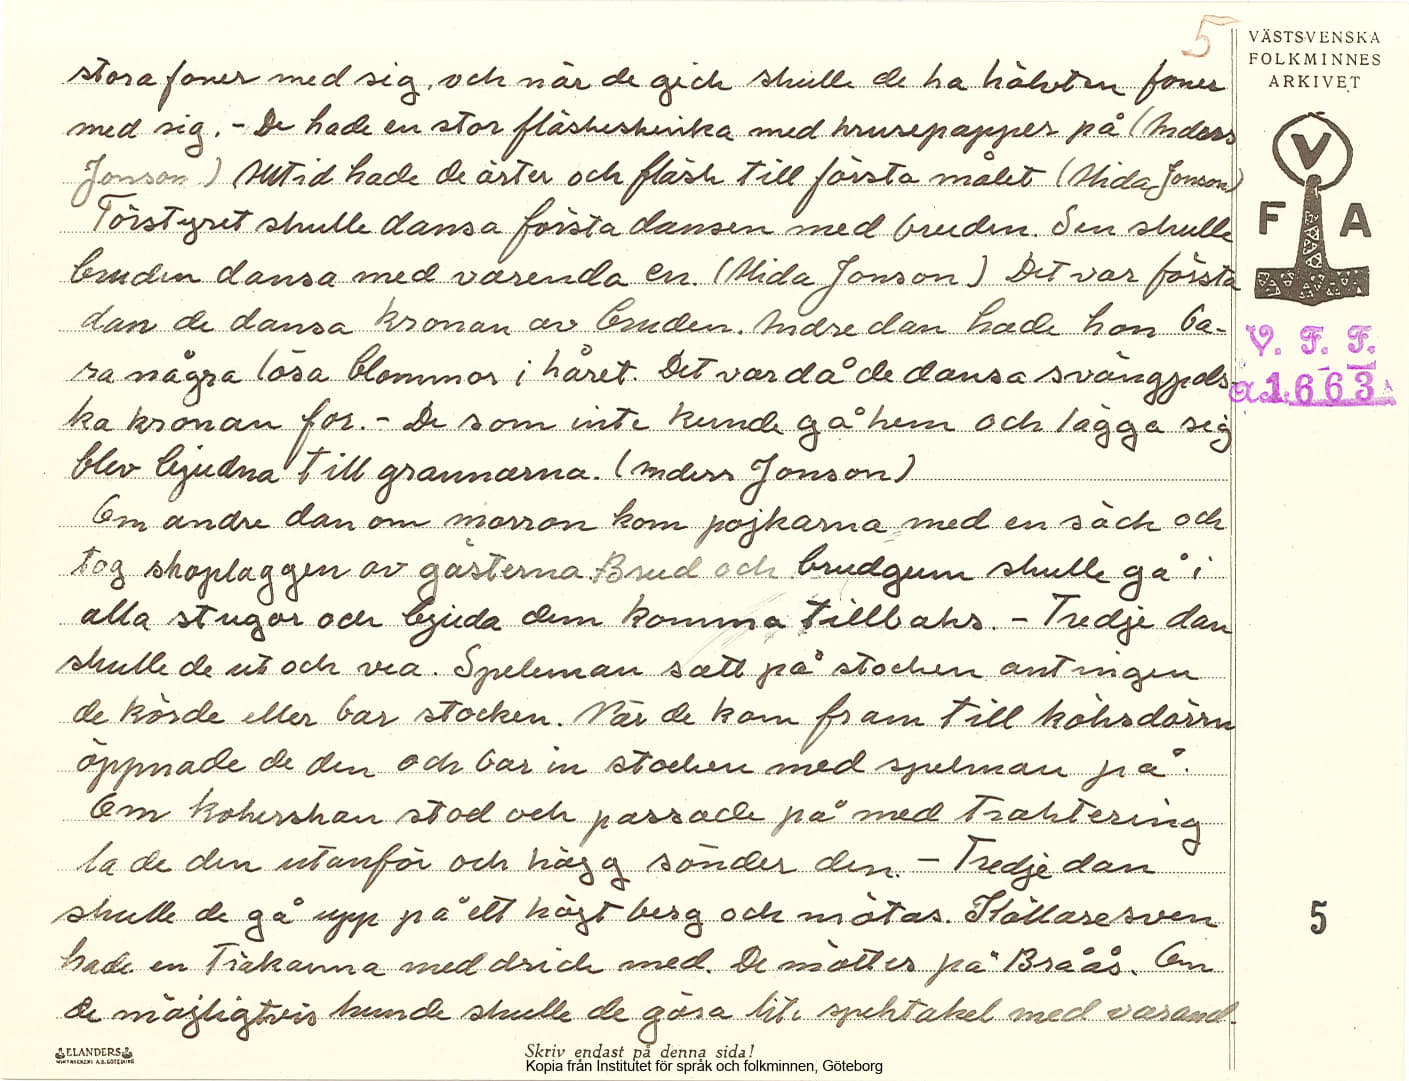 5
VÄSTSVENSKA
FOLKMINNES
ARKIVET
stora foner med sig, och när de gick skulle de ha hälvten foner
med sig. - De hade en stor fläskskinka med krusepapper på (Anders
Jonson) Alltid hade de ärter och fläsk till första målet (Alida Jonson)
Törstyret skulle dansa första dansen med bruden. Sen skulle
bruden dansa med varenda en. (Alida Jonson) Det var första
dan de dansa kronan av bruden. Andre dan hade hon ba-
ra några lösa blommor i håret. Det var då de dansa svängpols-
ka kronan for. - De som inte kunde gå hem och lägga sig
blev bjudna till grannarna. (Anders Jonson)
Om andre dan om morron kom pojkarna med en säck och
tog skoplaggen av gästerna. Brud och brudgum skulle gå i
alla stugor och bjuda dem komma tillbaks. - Tredje dan
skulle de ut och vea. Speleman satt på stocken antingen
de körde eller bar stocken. När de kom fram till köksdörrn
öppnade de den och bar in stocken med spelman på.
Om kokerskan stod och passade på med traktering
la de den utanför och högg sönder den. - Tredje dan
skulle de gå upp på ett högt berg och mötas. Källaresven
hade en träkanna med drick med. De möttes på Braås. Om
de möjligtvis kunde skulle de göra lite spektakel med varand-
V
F A
V. F. F.
a.1663
5
ELANDERS
BOKTRYCKERI A.B. GÖTEBORG
Skriv endast på denna sida!
Kopia från Institutet för språk och folkminnen, Göteborg